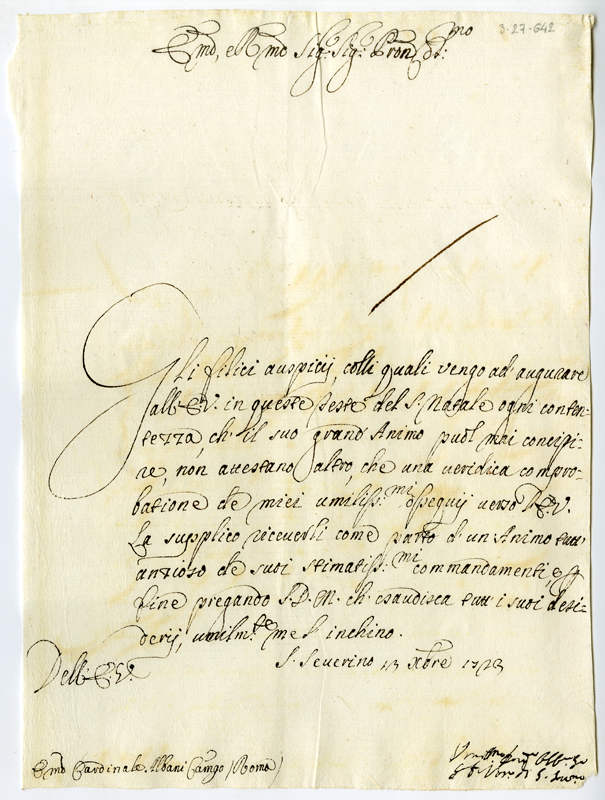 3-27-642
Emo, e Rmo Sig.r Sig.r Pron
Gli felici auspicij, colli quali vengo ad' augurare
all' E.V. in queste feste del S. Natale ogni conten-
tezza, ch' il suo grand' Animo puol mai concipi-
re, non attestano altro, che una veridica compro-
batione de miei umiliss:mi osseguij verso l' E.V.
La supplico riceverli come parto d' un Animo tutt'
antioso de suoi stimatiss:mi commandamenti, e
fine pregando S.D.M. ch' esaudisca tutt' i suoi desi-
derij, umilm:te me l' inchino.
Dell' E.V. S. Severino 13 Xbre 1723
Emo Cardinale Albani Camgo (Roma)